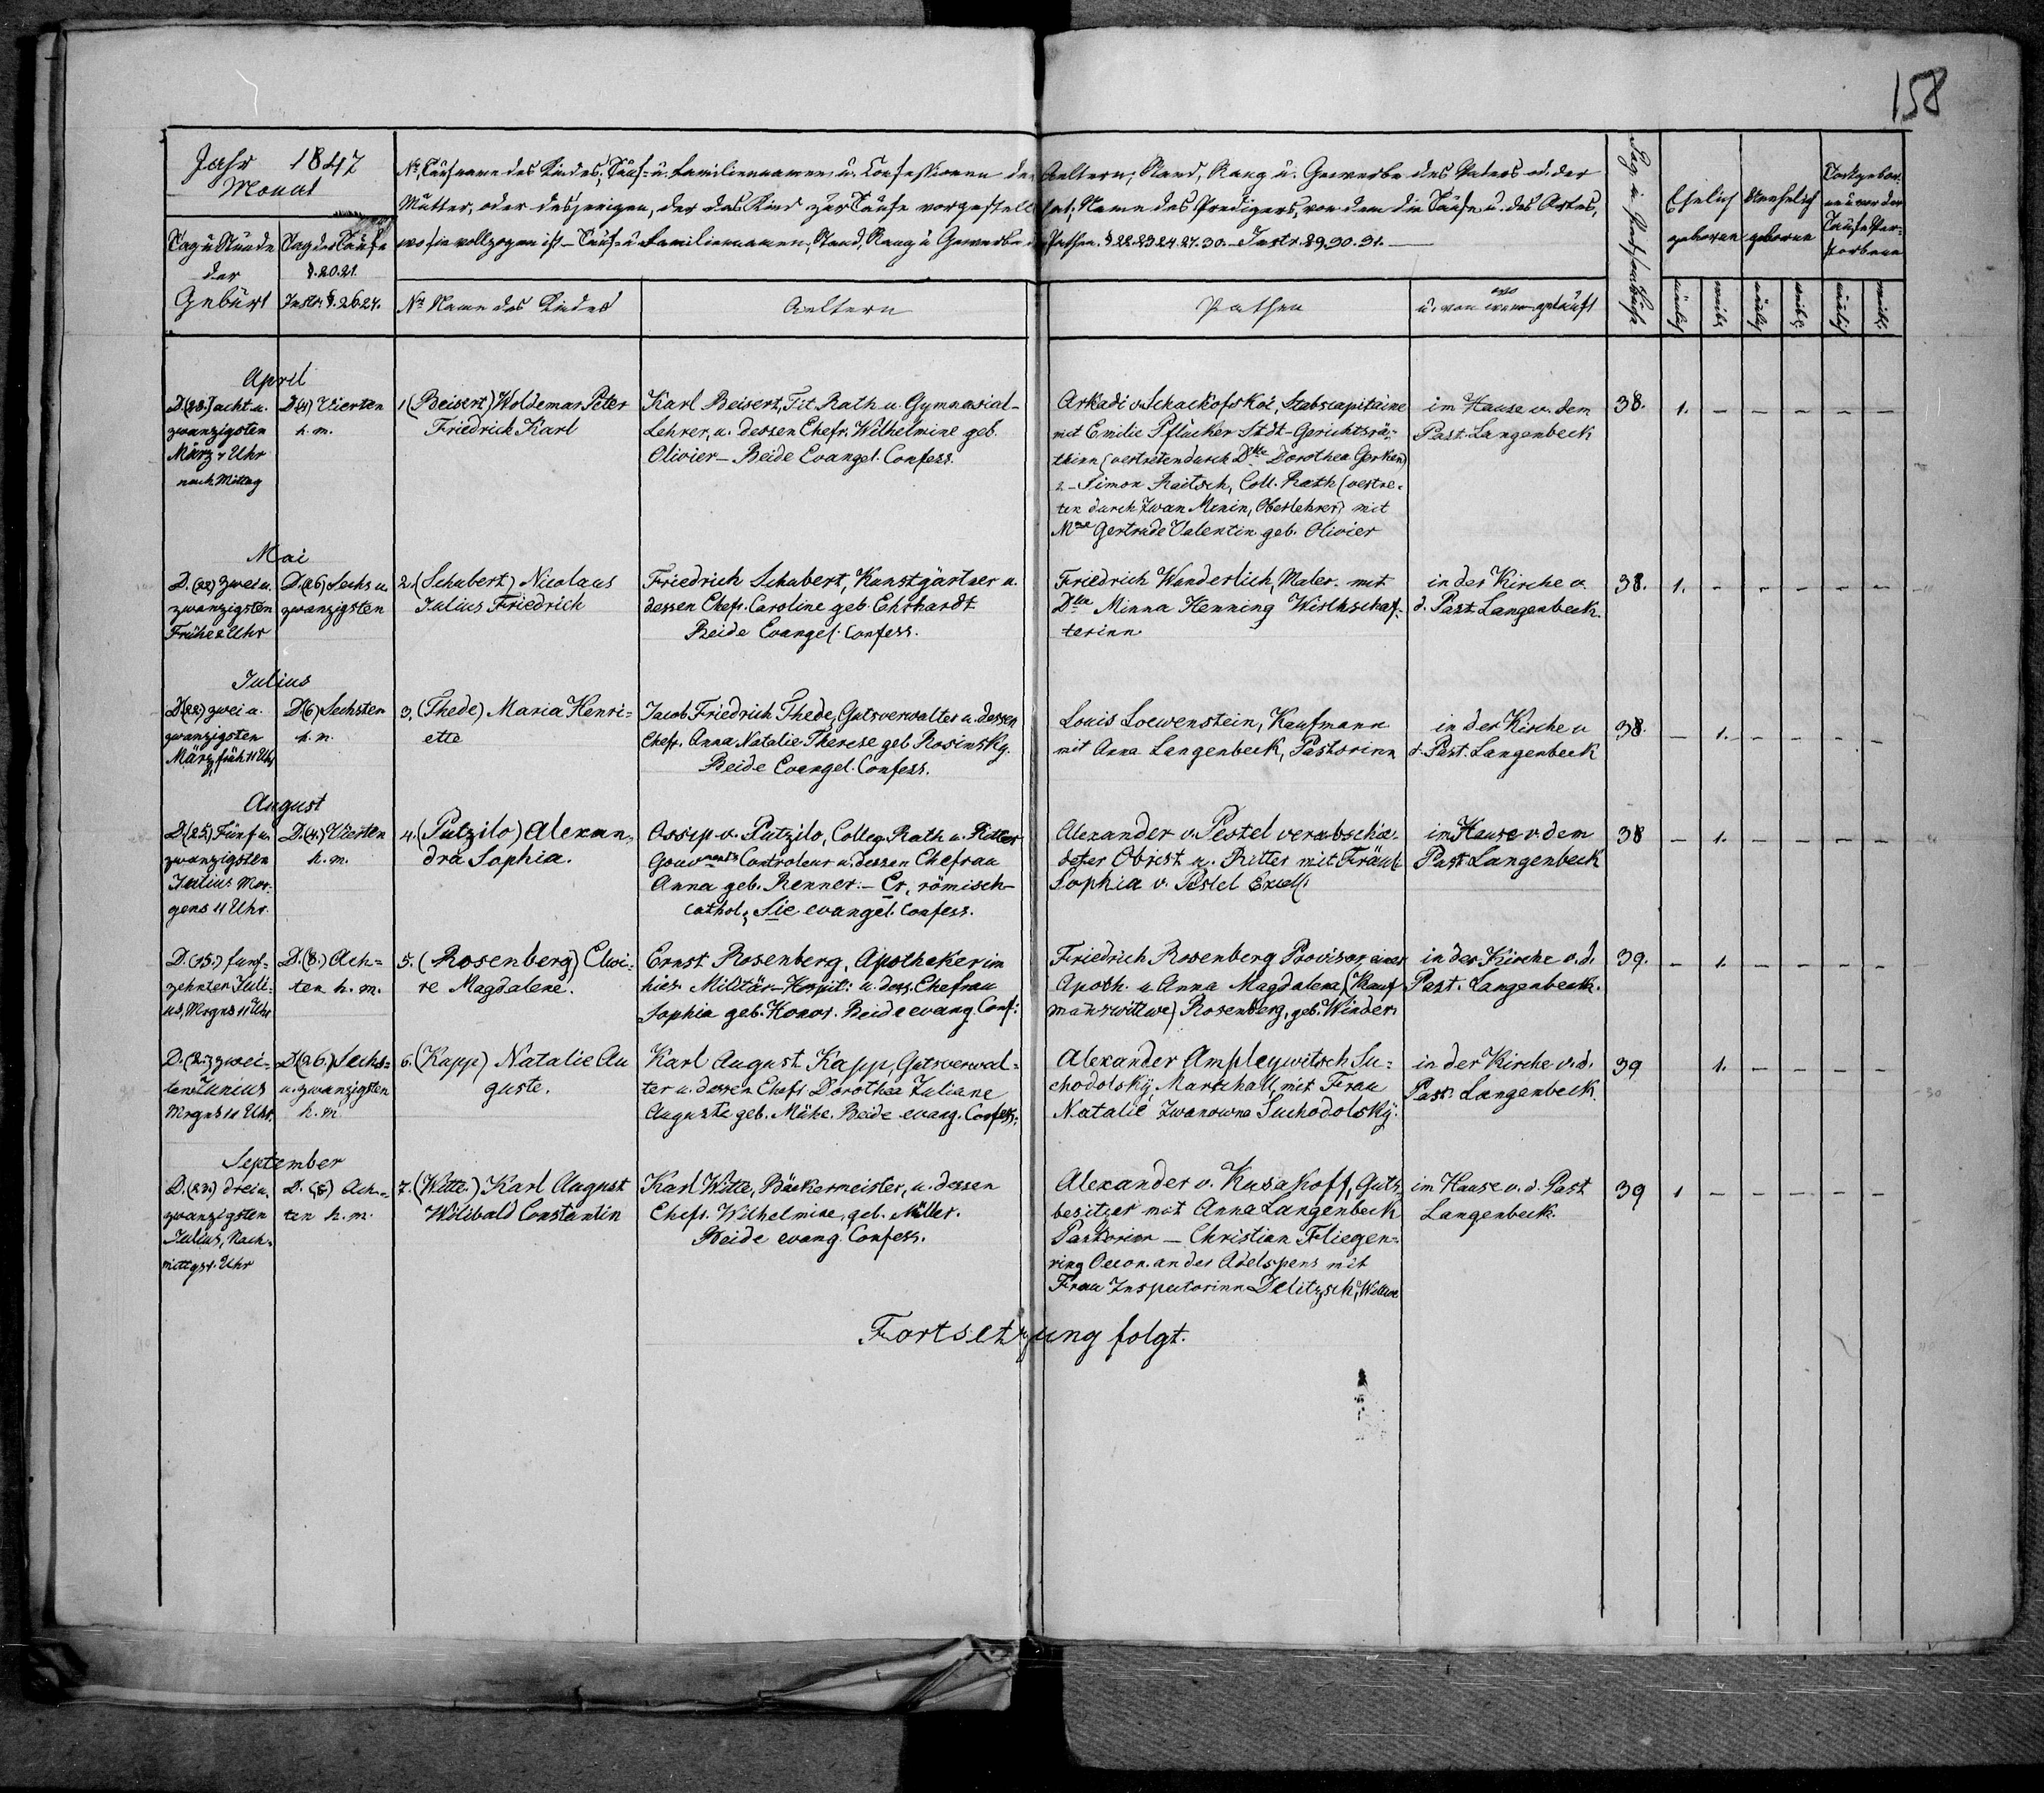 158
Jahr 1847
Monat
Tag u Stunde
der
Geburt
Tag der Taufe
§. 20.21.
Instr. §. 26 27.
No Taufname des Kindes; Tauf- u. Familiennamen u. Confessionen der Aeltern, Stand, Rang u. Gewerbe des Vaters od. der
Mutter, oder desjenigen, der das Kind zur Taufe vorgestellt hat; Name des Predigers, von dem die Taufe u. des Ortes,
wo sie vollzogen ist – Tauf- u Familiennamen, Stand, Rang u Gewerbe d Pathen. § 22.23 24. 27. 30. Instr. 29. 30. 31.
No Name des Kindes
Aeltern
Pathen
wo
u. von wem getauft
Ehelich
geboren
Unehelich
geboren
Todtgebor.
und vor der
Taufe Ver-
storbene
männlich
weibl.
männlich
weibl.
männlich
weibl.
April
D.(28.) acht u.
zwanzigsten
März 4 Uhr
nach Mittag
D(4) Vierten
h. m.
1 (Beisert) Woldemar Peter
Friedrich Karl
Karl Beisert, Tit. Rath u. Gymnasial-
Lehrer, u. dessen Ehefr. Wilhelmine geb.
Olivier – Beide Evangel. Confess.
Arkadi v. Schachofskoi, Stabscapitaine
mit Emilie Pflücker Stdt-Gerichtsrä-
thinn (vertreten durch Dlle Dorothea Gerken)
2 – Simon Raitsch, Coll. Rath (vertre-
ten durch Iwan Menin, Oberlehrer) mit
Mme Gertrude Valentin geb. Olivier
im Hause v. dem
Past. Langenbeck
38. 1. – – – – –
Mai
D. (22) zwei u.
zwanzigsten
Frühe 2 Uhr
D(26) Sechs u.
zwanzigsten
2. (Schubert) Nicolaus
Julius Friedrich
Friedrich Schubert, Kunstgärtner u.
dessen Ehefr. Caroline geb. Ehrhardt
Beide Evangel. Confess.
Friedrich Wunderlich, Maler. mit
Dlle Minna Henning Wirthschaf-
terinn
in der Kirche v.
d. Past. Langenbeck.
38. 1. – – – – –
Julius
D(22) zwei u.
zwanzigsten
März früh 11 Uhr
D(6) Sechsten
h. m.
3. (Thede) Maria Henri-
ette
Jacob Friedrich Thede, Gutsverwalter u. dessen
Ehefr. Anna Natalie Therese geb Rosinsky.
Beide Evangel. Confess.
Louis Loewenstein, Kaufmann
mit Anna Langenbeck, Pastorinn
in der Kirche v
d. Past. Langenbeck
38. – 1. – – – –
August
D.(25.) Fünf u.
zwanzigsten
Julius Mor-
gens 11 Uhr.
D.(4.) Vierten
h. m.
4. (Putzilo) Alexan-
dra Sophia.
Ossip v. Putzilo, Colleg. Rath u. Ritter
Gouvments Controleur u. dessen Ehefrau
Anna geb. Renner. – Er, römisch-
cathol; Sie evangel. Confess.
Alexander v. Pestel verabschie-
deter Obrist u. Ritter mit Fräul.
Sophia v. Pestel Excell.
im Hause v dem
Past Langenbeck
38 – 1. – – – –
D. (15.) funf-
zehnten Juli-
us, Mrgns 11 Uhr
D.(8.) Ach-
ten h. m.
5. (Rosenberg) Elwi-
re Magdalene.
Ernst Rosenberg, Apotheker im
hies. Militär-Hospit: u. dess. Ehefrau
Sophia geb. Honor. Beide evang. Conf:
Friedrich Rosenberg Provisor einer
Apoth. u. Anna Magdalena (Kauf
mañswittwe) Rosenberg, geb. Winder.
in der Kirche v. d.
Past. Langenbeck.
39. – 1. – – – –
D.(2.) zwei-
ten Junius
Mrgns 10 Uhr.
D(26.) Sechs-
u. zwanzigsten
h. m
6. (Kapp) Natalie Au
guste.
Karl August Kapp, Gutsverwal-
ter u. dessen Ehefr. Dorothea Juliane
Auguste geb. Mühe. Beide evang. Confess.
Alexander Ampleywitsch Su-
chodolsky, Marschall, mit Frau
Natalie Iwanowna Suchodolsky.
in der Kirche v. d.
Past. Langenbeck.
39 1. – – – –
September
D.(23.) drei u.
zwanzigsten
Julius, Nach-
mittgs 1. Uhr
D. (8) Ach-
ten h. m.
7. (Witte.) Karl August
Willibald Constantin
Karl Witte, Bäckermeister, u. dessen
Ehefr. Wilhelmine, geb. Müller.
Beide evang. Confess.
Alexander v. Kusakoff, Guts-
besitzer mit Anna Langenbeck
Pastorinn – Christian Fliegen-
ring Oecon. an der Adelspens mit
Frau Inspectorinn Delitzsch, Wittwe
im Hause v. d. Past
Langenbeck.
39 1 – – – – –
Fortsetzung folgt.